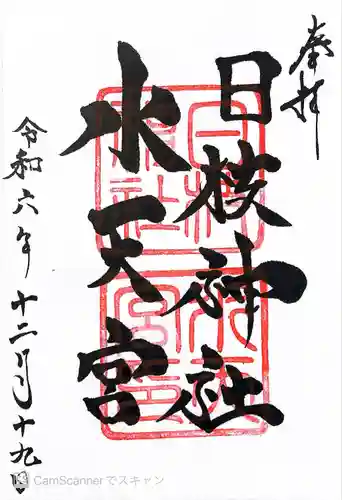 奉拝
日枝神社
水天宮
令和六年十二月十九日
CamScannerでスキャン